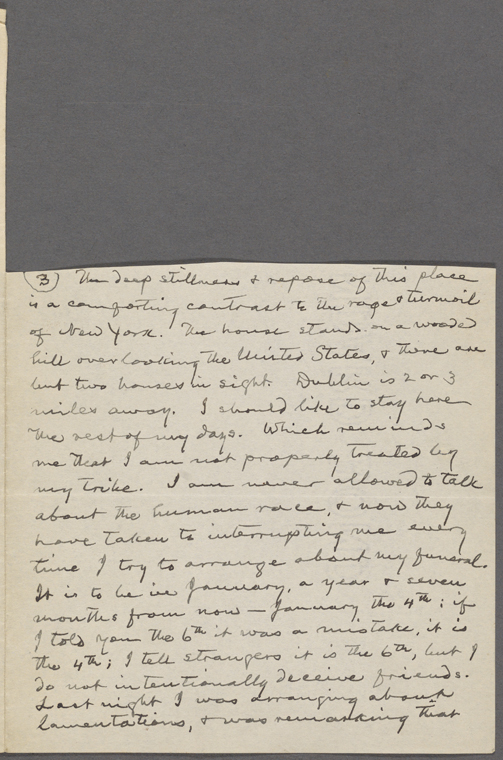 (3) The deep stillness & repose of this place
is a comforting contrast to the rage & turmoil
of New York. The house stands on a wooded
hill overlooking the United States, & there are
but two houses in sight. Dublin is 2 or 3
miles away. I should like to stay here
the rest of my days. Which reminds
me that I am not properly treated by
my tribe. I am never allowed to talk
about the human race, & now they
have taken to interrupting me every
time I try to arrange about my funeral.
It is to be in January, a year & seven
months from now — January the 4th; if
I told you the 6th it was a mistake, it is
the 4th; I tell strangers it is the 6th, but I
do not intentionally deceive friends.
Last night I was arranging about
lamentations, & was remarking that